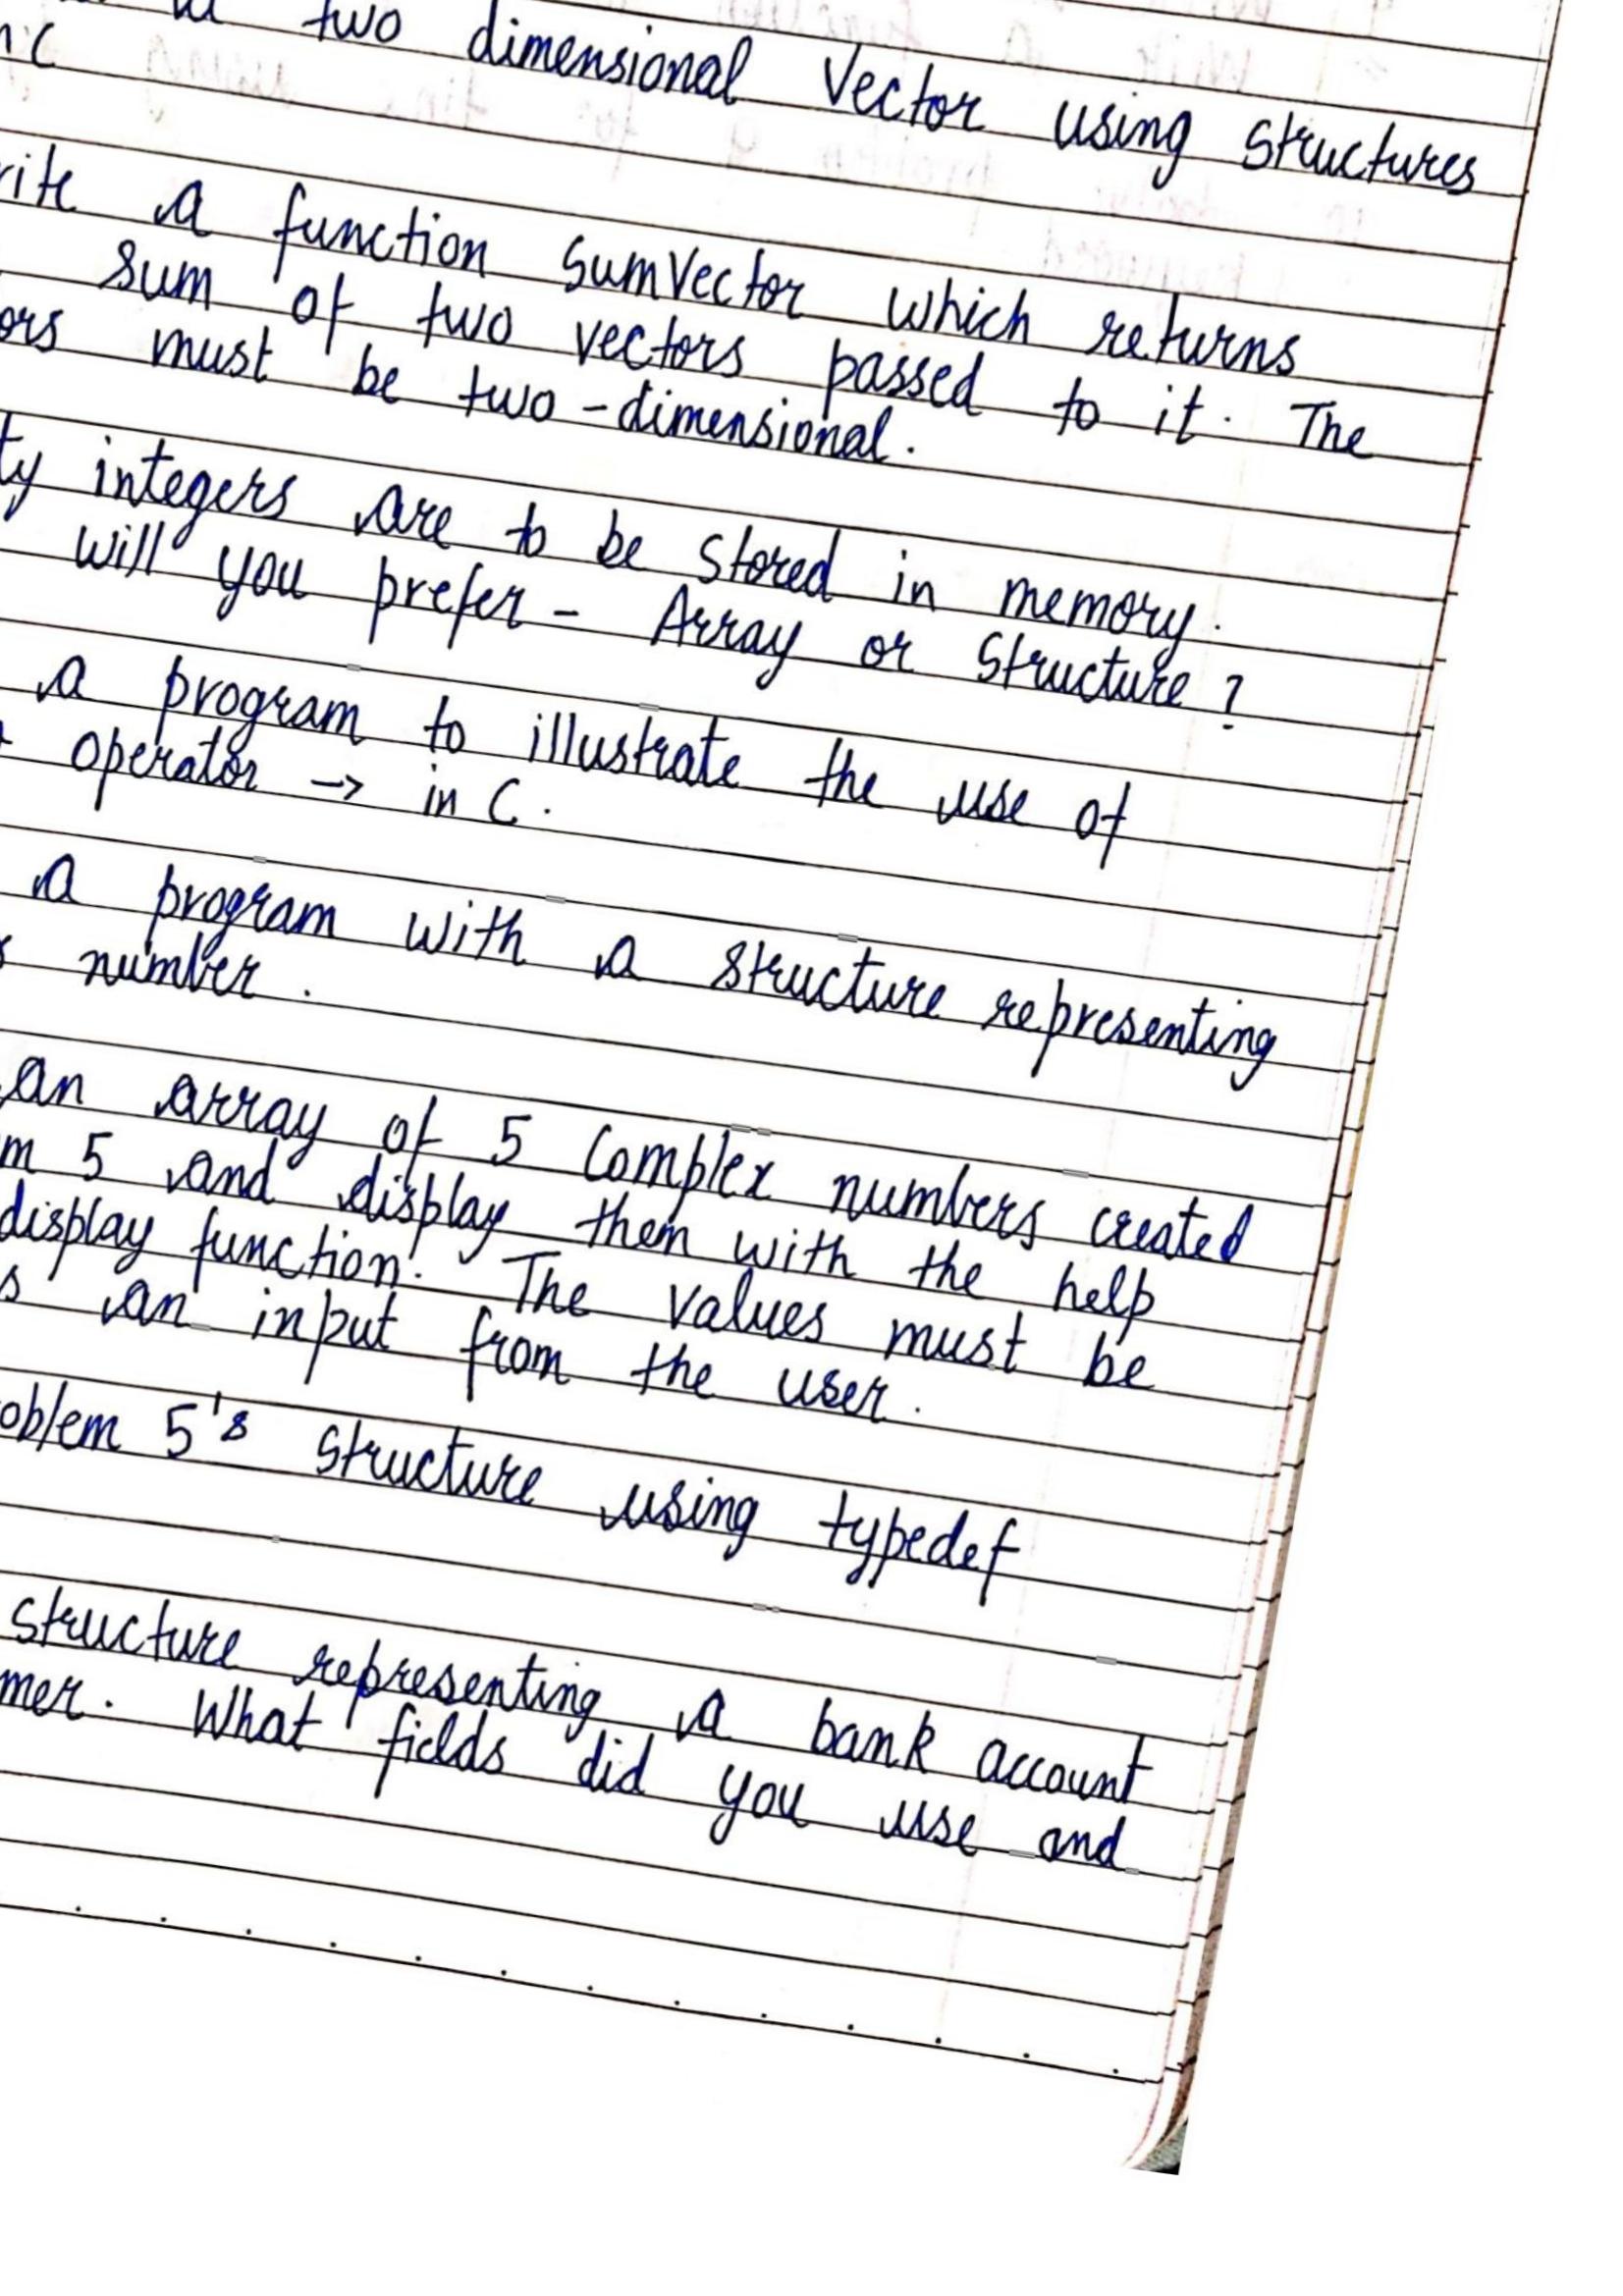 two dimensional Vector using structures
in C
a function SumVector which returns
sum of two vectors passed to it. The
must be two-dimensional.
integers are to be stored in memory.
will you prefer - Array or Structure?
a program to illustrate the use of
operator → in C.
a program with a structure representing
number.
an array of 5 Complex numbers created
5 and display them with the help
display function. The values must be
an input from the user.
5's structure using typedef
structure representing a bank account
What fields did you use and